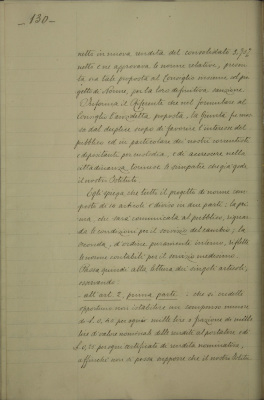 - 130 -
netto in nuova rendita del consolidato 3,75%
netto e ne approvava le norme relative, presen-
tò tale proposta al Consiglio insieme al pro-
getto di Norme, per la loro definitiva sanzione.
Chefurma il che nel formulare al
Consiglio l'anzidetta proposta, la Giunta fu mos-
sa dal duplice scopo di favorire l'interesse del
pubblico ed in particolare dei nostri correntisti
e depositanti per custodia, e di accrescere nella
cittadinanza le simpatie ch'essa gode
il nostro Istituto.
Egli spiega che tutto il progetto di norme com-
posto di articoli è diviso in due parti; la pri-
ma, che sarà comunicata al pubblico, riguar-
da le condizioni per il servizio del cambio; la
seconda, d'ordine puramente interno, riflette
le norme contabili per il servizio medesimo.
Passa quindi alla lettura dei singoli articoli,
osservando:
- all'art. 2, prima parte - che si credette
opportuno non istabilire un compenso minore
di L. 0,25 per ogni mille lire o frazione di mille
lire di valore nominale delle rendite al portatore ed
L. 0, per ogni certificato di rendita nominativa,
affinchè non si possa supporre che il nostro Istituto